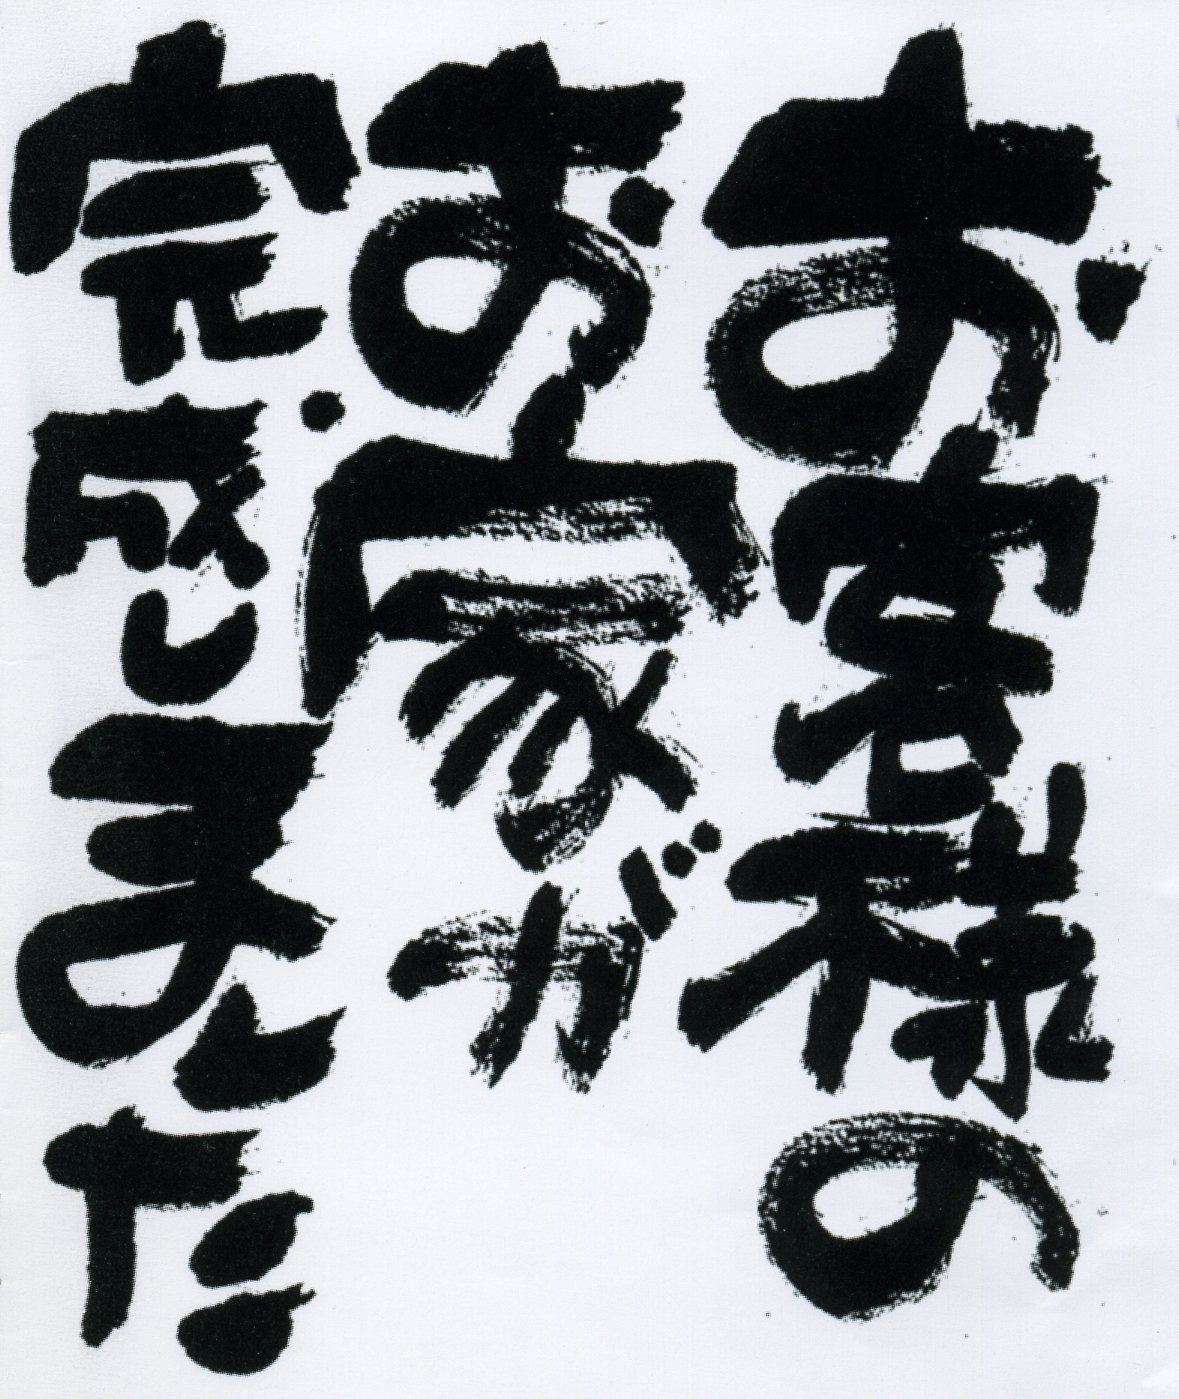 お客様の
お家が
完成しました